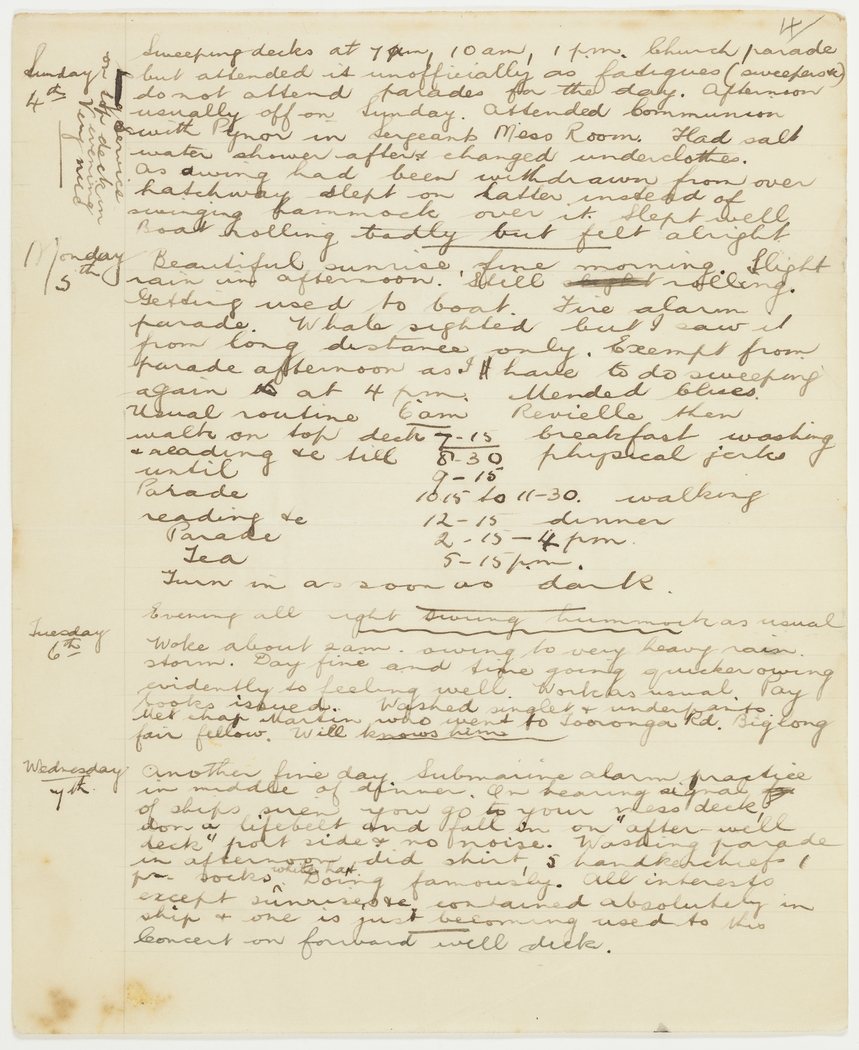 4/
Sunday
4th
Service
on top deck in
evening
Very nice
Sweeping decks at 7 am, 10 am, 1 p.m. Church parade
but attended it unofficially as fatigues (sweepers &c)
do not attend parades for the day. Afternoon
usually off on Sunday. Attended Communion
with Pynor in Sergeants Mess Room. Had salt
water shower after & changed underclothes.
As awing had been withdrawn from over
hatchway slept on latter instead of
swinging hammock over it. Slept well
Boat rolling badly but felt alright
Monday
5th
Beautiful sunrise fine morning. Slight
rain in afternoon. Still rolling.
Getting used to boat. Fire alarm
parade. Whale sighted but I saw it
from long distance only. Exempt from
parade afternoon as I have to do sweeping
again at 4 pm. Mended blues.
Usual routine 6 am Revielle then
walk on top deck 7-15 breakfast washing
& reading &c till 8-30 physical jerks
until 9-15
Parade 10 15 to 11-30. walking
reading &c 12-15 dinner
Parade 2-15 - 4 pm.
Tea 5-15 p.m.
Turn in as soon as dark.
Evening all right swung hummock as usual
Tuesday
6th
Woke about 2 am. owing to very heavy rain
storm. Day fine and time going quicker owing
evidently to feeling well. Work as usual. Pay
books issued. Washed singlet & underpants.
Met chap Martin who went to Tooronga Rd. Big long
fair fellow. Will knows him
Wednesday
7th.
Another fine day Submarine alarm practice
in middle of dinner. On hearing signal
of ships siren you go to your mess deck,
don a lifebelt and fall in on "after-well
deck" port side & no noise. Washing parade
in afternoon, did shirt, 5 handkerchiefs 1
pr socks white hat. Doing famously. All interests
except sunrises &c, contained absolutely in
ship & one is just becoming used to this
Concert on forward well deck.